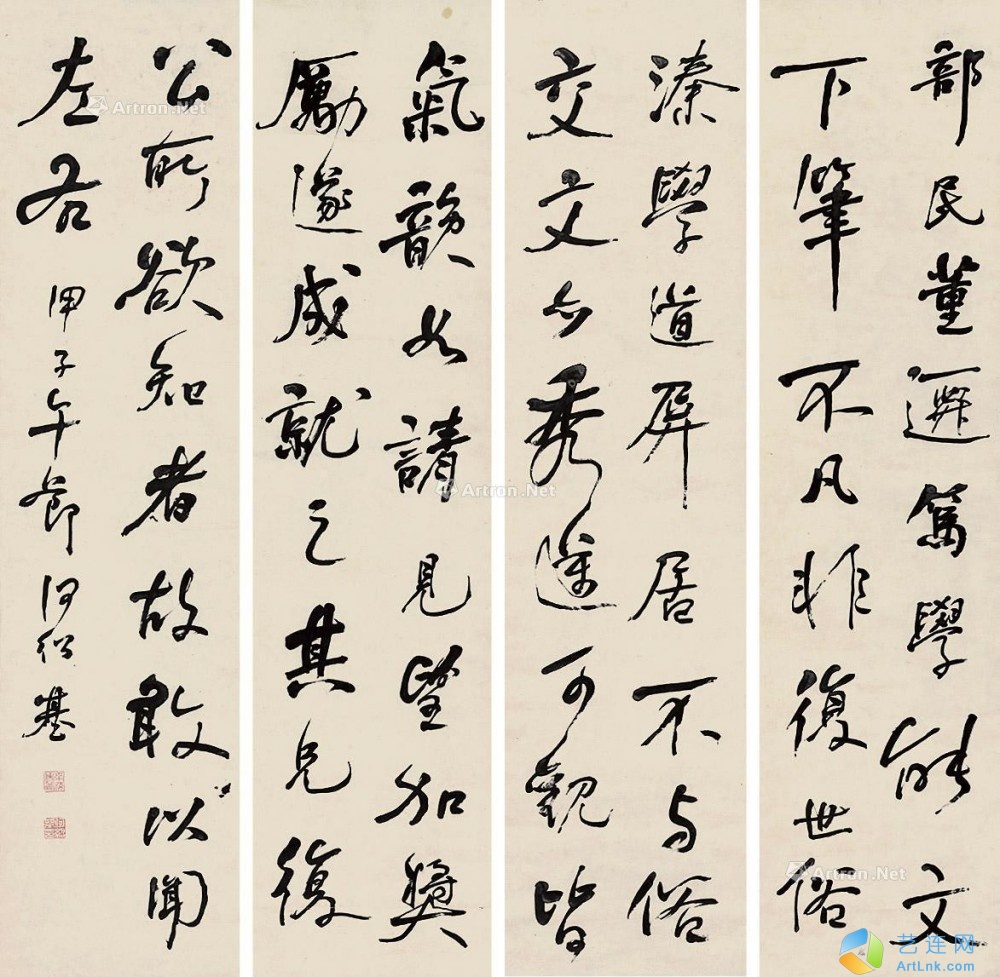 部民董篤學能文
下筆不凡非復世俗
溱學道屏居不与俗
交文亦秀邁可觀皆
氣韻如請見望加獎
勵遂成就之其兄復
公所欲知者故敢以聞
左右
甲子午節 何紹基
Artron.Net
Artron.Net
Artron.Net
Artron.Net
艺连网
ArtLnk.com